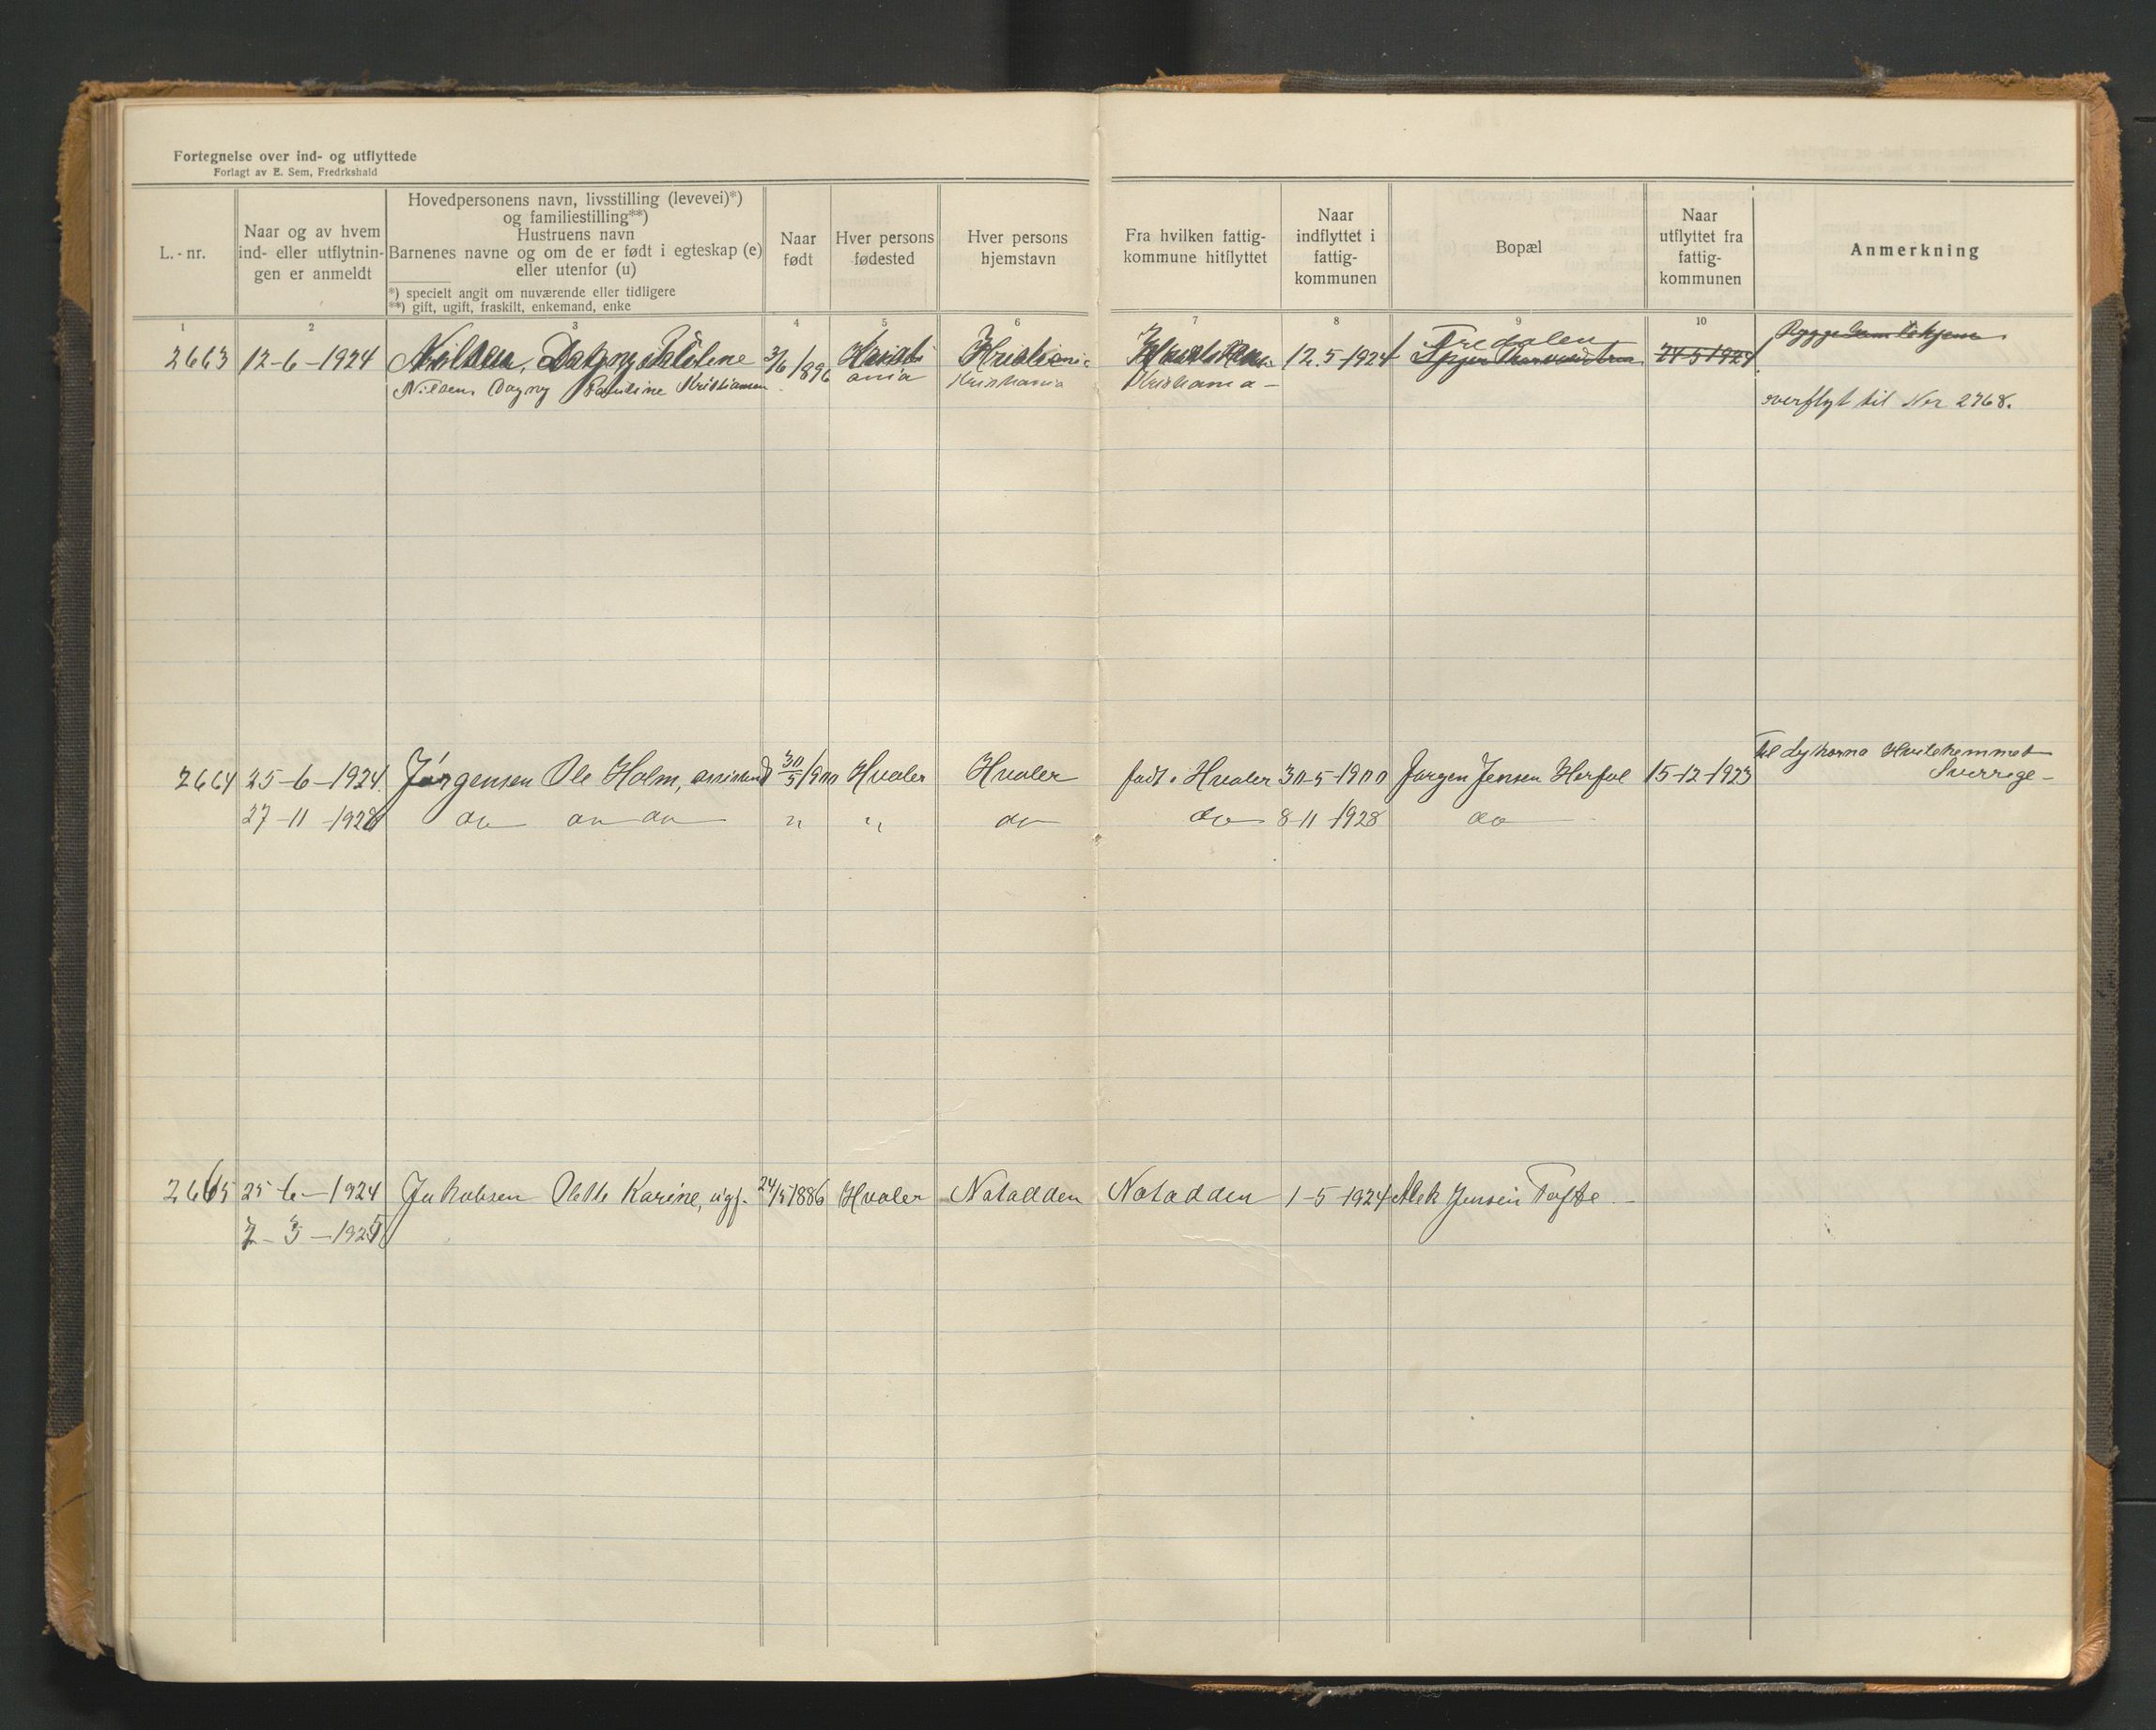 Fortegnelse over ind- og utflyttede
Forlagt av E. Sem, Fredrkshald
L.-nr.
Naar og av hvem
ind- eller utflytnin-
gen er anmeldt
Hovedpersonens navn, livsstilling (levevei)*)
og familiestilling**)
Hustruens navn
Barnenes navne og om de er født i egteskap (e)
eller utenfor (u)
*) specielt angit om nuværende eller tidligere
**) gift, ugift, fraskilt, enkemand, enke
Naar
født
Hver persons
fødested
Hver persons
hjemstavn
Fra hvilken fattig-
kommune hitflyttet
Naar
indflyttet i
fattig-
kommunen
Bopæl
Naar
utflyttet fra
fattig-
kommunen
Anmerkning
1 2 3 4 5 6 7 8 9 10
2663 12-6-1924 Nilsen, Dagny 3/6 1896 Kristi Kristiania 12.5-1924 Fredalen 24-5-1924
Nilsen Dagny Pauline Kristiansen ania Kristiania Kristiania - overflyt til Nr 2768.
2664 25-6-1924 Jørgensen Ole Holm, 30/5 1900 Hvaler Hvaler født i Hvaler 30-5-1900 Jørgen Jensen Herføl 15-12-1923 Til Hvilehemmet
Sverrige-
27-11-1928 do do do " " do do 8-11-1928 do
2665 25-6-1924 Jakobsen Olette Karine, ugf. 24/5 1886 Hvaler Notodden Notodden 1-5-1924 Alek Jensen Tofte -
7-3-1925